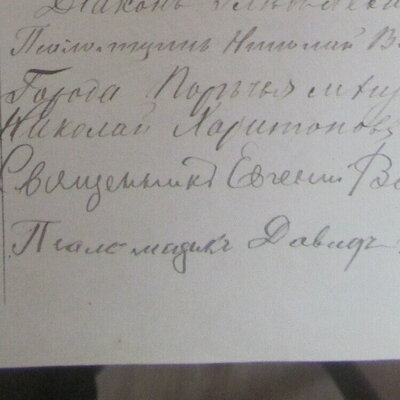 Діаконъ
Псаломщикъ Николай В
Города Порѣчья мѣщ
Николай Харитоновъ
Священникъ Евгеній В
Псаломщикъ Давидъ